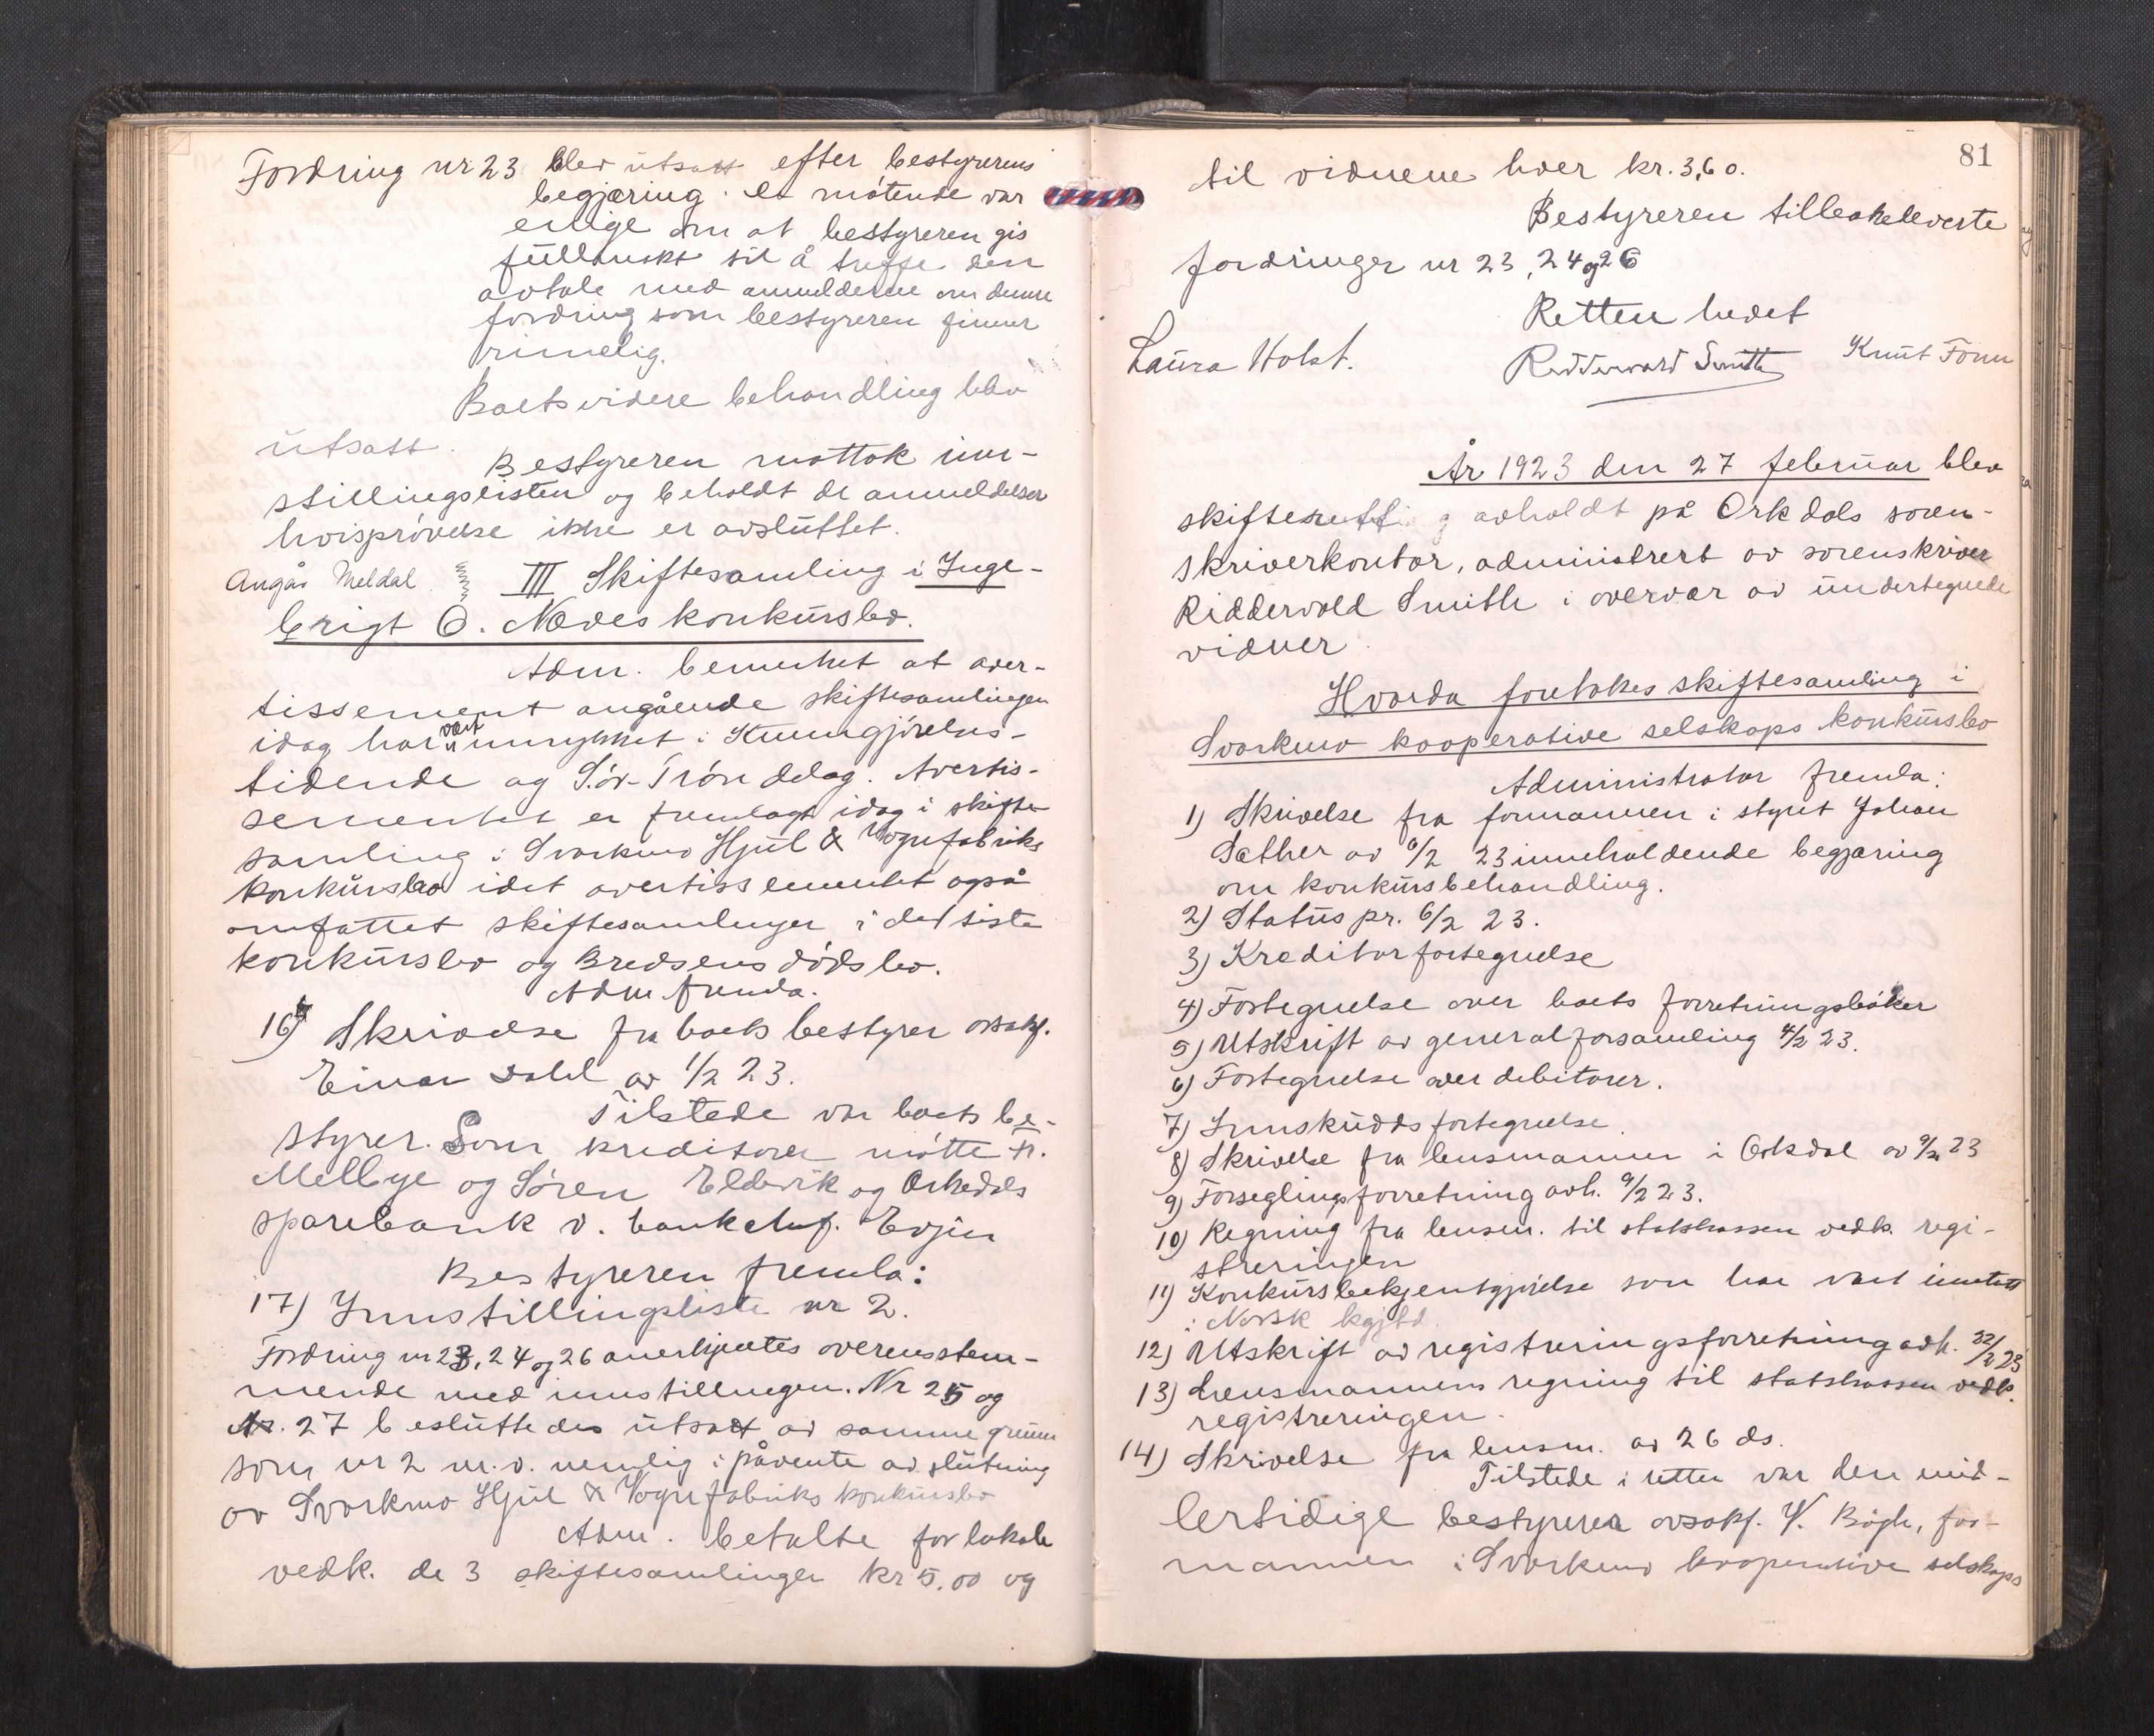 Fordring nr 23 blev utsatt efter bestyrerens
begjæring. De møtende var
enige om at bestyreren gis
fullmakt til å treffe den
avtale med anmelderne om denne
fordring som bestyreren finner
rimelig.
Boets videre behandling blev
utsatt.
Bestyreren mottok inn-
stillingslisten og beholdt de anmeldelser
hvis prøvelse ikke er avsluttet.
Angår Meldal III Skiftesamling i Inge-
brigt O. Næves konkursbo.
Adm. bemerket at aver-
tissement angående skiftesamlingen
idag har vært innrykket i Kunngjørelses-
tidende og Sør-Trøndelag. Avertis-
sementet er fremlagt idag i skifte-
samling i Svorkmo Hjul & Vognfabriks
konkursbo idet avertissementet også
omfattet skiftesamlinger i det siste
konkursbo og Bredsens dødsbo.
Adm. fremla.
16) Skrivelse fra boets bestyrer o.r.sakf.
Einar Dahl av 1/2 23.
Tilstede var boets be-
styrer. Som kreditorer møtte H.
Mellbye og Søren Eldevik og Orkedals
sparebank v. bankchef. Evjen
Bestyreren fremla:
17) Innstillingsliste nr 2.
Fordring nr 23, 24 og 26 anerkjentes overensstem-
mende med innstillingen. Nr 25 og
Nr. 27 besluttedes utsatt av samme grunn
som nr 2 m.v. nemlig i påvente av slutning
av Svorkmo Hjul & Vognfabriks konkursbo
Adm. betalte for lokale
vedk. de 3 skiftesamlinger kr 5,00 og
81
til vidnene hver kr. 3,60.
Bestyreren tilbakeleverte
fordringer nr 23, 24 og 26
Retten hevet
Laura Holst. Riddervold Smith Knut Fonn
År 1923 den 27 februar blev
skifterett avholdt på Orkdals soren-
skriverkontor, administrert av sorenskriver
Riddervold Smith i overvær av undertegnede
vidner.
Hvorda foretokes skiftesamling i
Svorkmo kooperative selskaps konkursbo
Administrator fremla:
1) Skrivelse fra formannen i styret Johan
Sæther av 6/2 23 inneholdende begjæring
om konkursbehandling.
2) Status pr. 6/2 23.
3) Kreditorfortegnelse
4) Fortegnelse over boets forretningsbøker
5) Utskrift av generalforsamling 4/2 23.
6) Fortegnelse over debitorer.
7) Innskuddsfortegnelse.
8) Skrivelse fra lensmannen i Orkdal av 9/2 23
9) Forseglingsforretning avh. 9/2 23.
10) Regning fra lensm. til statskassen vedk. regi-
streringen
11) Konkursbekjentgjørelse som har vært inntatt
i Norsk kgjtd.
12) Utskrift av registreringsforretning avh. 22/2 23
13) Lensmannens regning til statskassen vedk.
registreringen.
14) Skrivelse fra lensm. av 26 ds.
Tilstede i retten var den mid-
lertidige bestyrer ovsakf. Bøgh, for-
mannen i Svorkmo kooperative selskaps